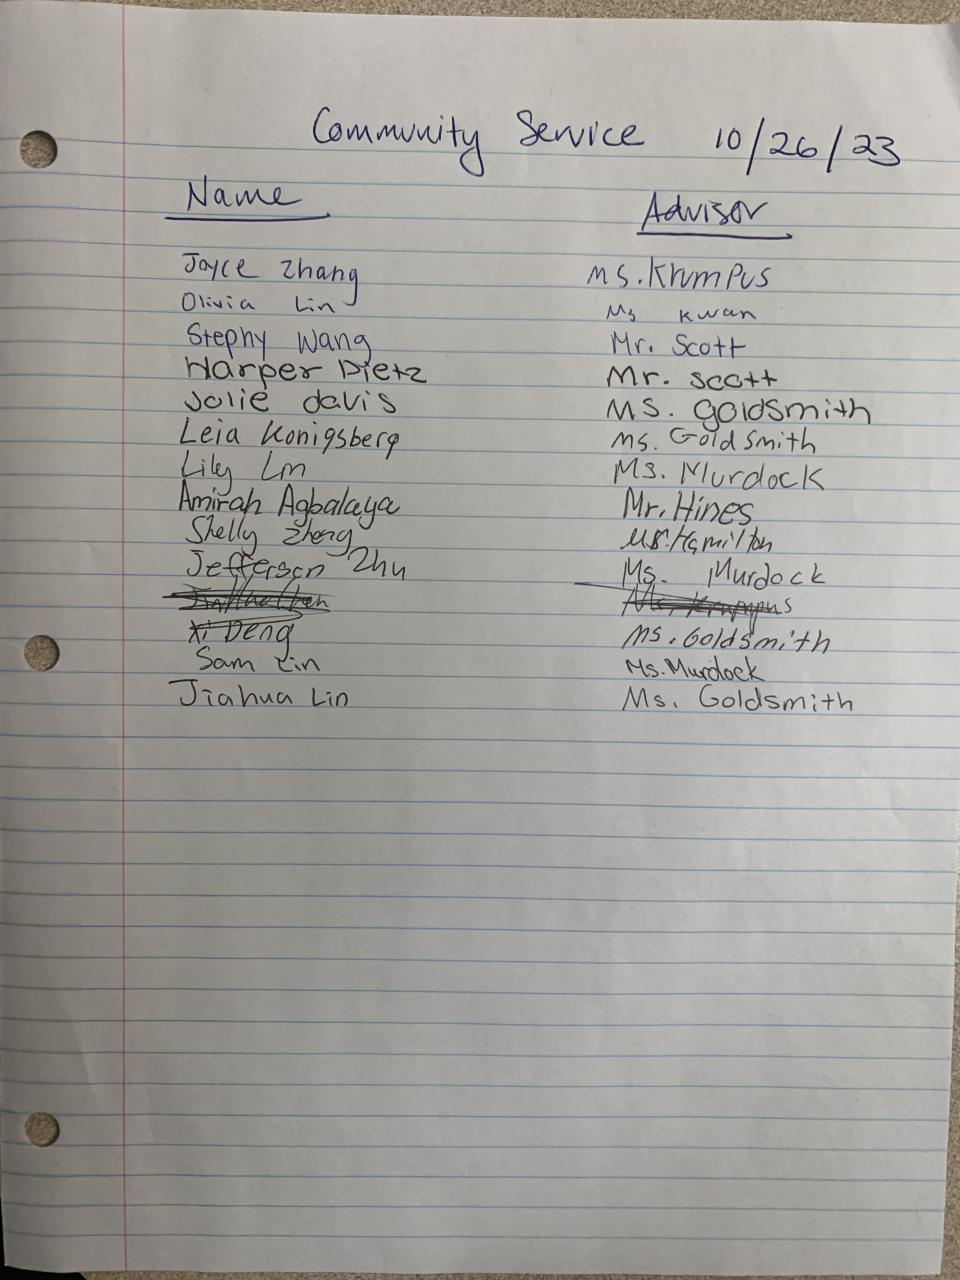 Community Service 10/26/23
Name Advisor
Joyce Zhang Ms. Krumpus
Olivia Lin Ms Kwan
Stephy Wang Mr. Scott
Harper Dietz Mr. scott
Jolie davis MS. goldsmith
Leia Konigsberg Ms. Goldsmith
Lily Lin Ms. Murdock
Amirah Agbalaya Mr. Hines
Shelly Zheng Hamilton
Jefferson Zhu Ms. Murdock
Ms. Krumpus
Xi Deng Ms. Goldsmith
Sam Lin Ms. Murdock
Jiahua Lin Ms. Goldsmith